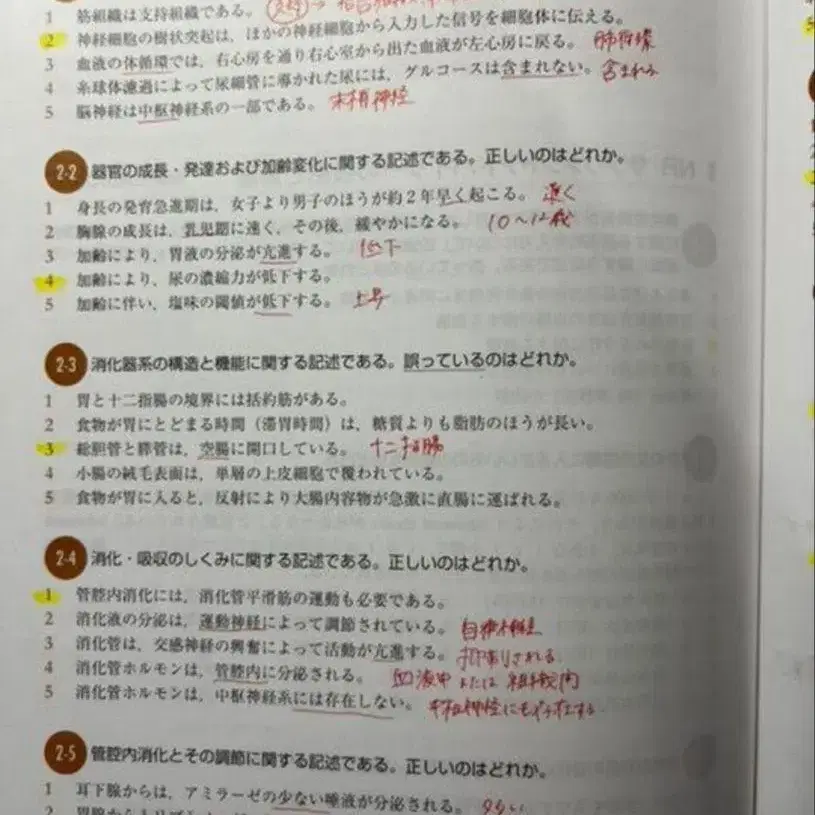 1 筋組織は支持組織である。
2 神経細胞の樹状突起は，ほかの神経細胞から入力した信号を細胞体に伝える。
3 血液の体循環では，右心房を通り右心室から出た血液が左心房に戻る。 肺循環
4 糸球体濾過によって尿細管に導かれた尿には，グルコースは含まれない。 含まれる
5 脳神経は中枢神経系の一部である。 末梢神経
2-2 器官の成長・発達および加齢変化に関する記述である。正しいのはどれか。
1 身長の発育急進期は，女子より男子のほうが約2年早く起こる。 遅く
2 胸腺の成長は，乳児期に速く，その後，緩やかになる。 10～12歳
3 加齢により，胃液の分泌が亢進する。 低下
4 加齢により，尿の濃縮力が低下する。
5 加齢に伴い，塩味の閾値が低下する。 上昇
2-3 消化器系の構造と機能に関する記述である。誤っているのはどれか。
1 胃と十二指腸の境界には括約筋がある。
2 食物が胃にとどまる時間（滞胃時間）は，糖質よりも脂肪のほうが長い。
3 総胆管と膵管は，空腸に開口している。 十二指腸
4 小腸の絨毛表面は，単層の上皮細胞で覆われている。
5 食物が胃に入ると，反射により大腸内容物が急激に直腸に運ばれる。
2-4 消化・吸収のしくみに関する記述である。正しいのはどれか。
1 管腔内消化には，消化管平滑筋の運動も必要である。
2 消化液の分泌は，運動神経によって調節されている。 自律神経
3 消化管は，交感神経の興奮によって活動が亢進する。 抑制される
4 消化管ホルモンは，管腔内に分泌される。 血液中または組織内
5 消化管ホルモンは，中枢神経系には存在しない。 中枢神経にも存在する
2-5 管腔内消化とその調節に関する記述である。正しいのはどれか。
1 耳下腺からは，アミラーゼの少ない唾液が分泌される。 多い